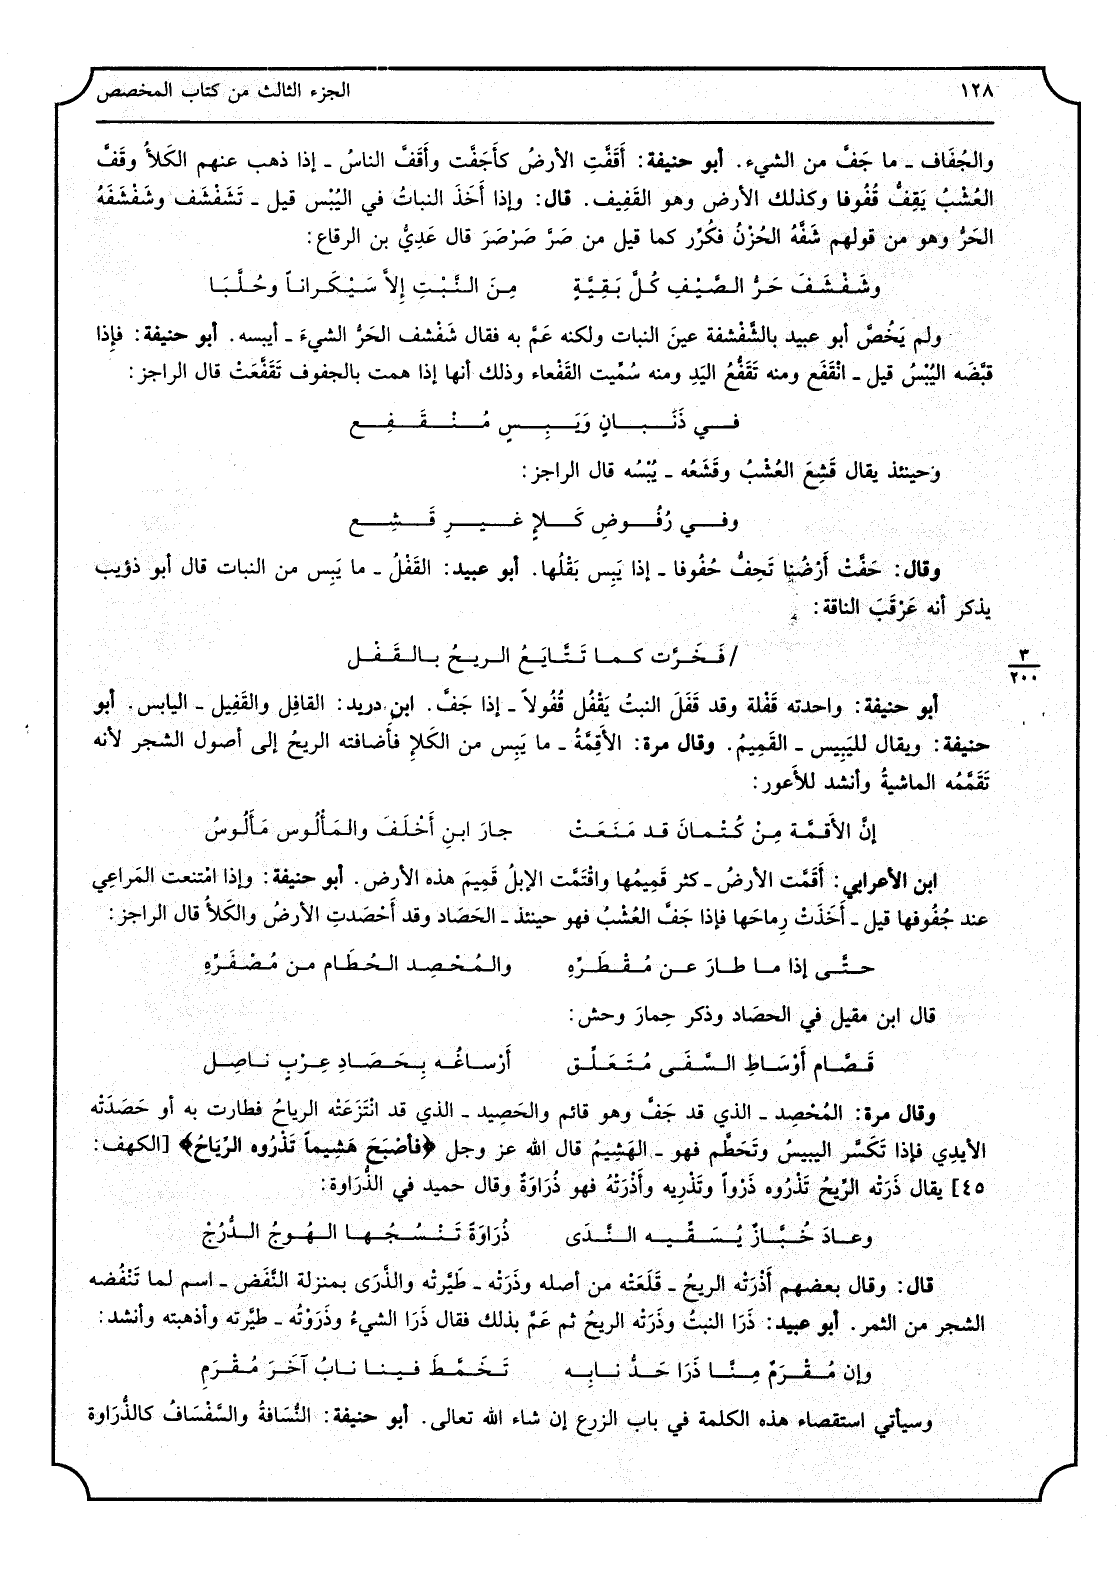 ١٢٨ الجزء الثالث من كتاب المخصص
والجُفَاف ـ ما جَفَّ من الشيء. أبو حنيفة: أَقَفَّتِ الأرضُ كأَجَفَّت وأَقَفَّ الناسُ ـ إذا ذهب عنهم الكَلأُ وقَفَّ
العُشْبُ يَقِفُّ قُفُوفا وكذلك الأرض وهو القَفِيف. قال: وإذا أَخَذَ النباتُ في اليُبْس قيل ـ تَشَفْشَف وشَفْشَفَهُ
الحَرُّ وهو من قولهم شَفَّهُ الحُزْنُ فكُرِّر كما قيل من صَرَّ صَرْصَرَ قال عَدِيُّ بن الرقاع:
وشَفْشَفَ حَرُّ الصَّيْفِ كُلَّ بَقِيَّةٍ مِنَ النَّبْتِ إلاَّ سَيْكَراناً وحُلَّبَا
ولم يَخُصَّ أبو عبيد بالشَّفْشفة عينَ النبات ولكنه عَمَّ به فقال شَفْشف الحَرُّ الشيءَ ـ أيبسه. أبو حنيفة: فإِذا
قبَّضَه اليُبْسُ قيل ـ انْقَفَع ومنه تَقَفُّعُ اليَدِ ومنه سُمِّيت القَفْعاء وذلك أنها إذا همت بالجفوف تَقَفَّعَتْ قال الراجز:
في ذَنَبانٍ وَيَبِسٍ مُنْقَفِع
وَحينئذ يقال قَشِعَ العُشْبُ وقَشَعُه ـ يُبْسُه قال الراجز:
وفي رُفُوضِ كَلإٍ غيرِ قَشِع
وقال: حَفَّتْ أَرْضُنا تَحِفُّ حُفُوفا ـ إذا يَبِس بَقْلُها. أبو عبيد: القَفْلُ ـ ما يَبِس من النبات قال أبو ذؤيب
يذكر أنه عَرْقَبَ الناقة:
/فَخَرَّت كما تَتَّايَعُ الريحُ بالقَفْل
٣
٢٠٠
أبو حنيفة: واحدته قَفْلة وقد قَفَلَ النبتُ يَقْفُل قُفُولاً ـ إذا جَفَّ. ابن دريد: القافِل والقَفِيل ـ اليابس. أبو
حنيفة: ويقال لليَبِيس ـ القَمِيمُ. وقال مرة: الأقِمَّةُ ـ ما يَبِس من الكَلإِ فأَضافته الريحُ إلى أصول الشجر لأنه
تَقَمَّمُه الماشيةُ وأنشد للأَعور:
إنَّ الأَقمَّة مِنْ كُتْمانَ قد مَنَعَتْ جارَ ابنِ أَخْلَفَ والمَأْلُوس مَأْلُوسُ
ابن الأعرابي: أَقَمَّت الأرضُ ـ كثر قَمِيمُها واقْتَمَّت الإبلُ قَمِيمَ هذه الأرض. أبو حنيفة: وإذا امْتنعت المَراعِي
عند جُفُوفها قيل ـ أَخَذَتْ رِماحَها فإذا جَفَّ العُشْبُ فهو حينئذ ـ الحَصَاد وقد أَحْصَدتِ الأرضُ والكَلأُ قال الراجز:
حتَّى إذا ما طارَ عن مُقْطَرِّهِ والمُحْصِد الحُطَام من مُصْفَرِّهِ
قال ابن مقيل في الحصَاد وذكر حِمارَ وحش:
قَصَّام أَوْسَاطِ السَّفَى مُتَعَلِّق أَرْساغُه بِحَصَادِ عِرْبٍ ناصِل
وقال مرة: المُحْصِد ـ الذي قد جَفَّ وهو قائم والحَصِيد ـ الذي قد انْتَزَعَتْه الرياحُ فطارت به أو حَصَدَتْه
الأيدِي فإذا تَكَسَّر اليبيسُ وتَحَطَّم فهو ـ الهَشِيمُ قال الله عز وجل ﴿فأصْبَحَ هَشِيماً تَذْرُوه الرِّيَاحُ﴾ [الكهف:
٤٥] يقال ذَرَتْه الرِّيحُ تَذْرُوه ذَرْواً وتَذْرِيه وأَذْرَتْهُ فهو ذُرَاوَةٌ وقال حميد في الذُّرَاوة:
وعادَ خُبَّازٌ يُسَقِّيه النَّدَى ذُرَاوَةً تَنْسُجُها الهُوجُ الدُّرُجْ
قال: وقال بعضهم أَذْرَتْه الريحُ ـ قَلَعَتْه من أصله وذَرَتْه ـ طَيَّرتْه والذَّرَى بمنزلة النَّفَض ـ اسم لما تَنْفُضه
الشجر من الثمر. أبو عبيد: ذَرَا النبتُ وذَرَتْه الريحُ ثم عَمَّ بذلك فقال ذَرَا الشيءُ وذَرَوْتُه ـ طيَّرته وأذهبته وأنشد:
وإن مُقْرَمٌ مِنَّا ذَرَا حَدُّ نابِه تَخَمَّطَ فينا نابُ آخَرَ مُقْرَمِ
وسيأتي استقصاء هذه الكلمة في باب الزرع إن شاء الله تعالى. أبو حنيفة: النُّسَافةُ والسَّفْسَافُ كالذُّرَاوة